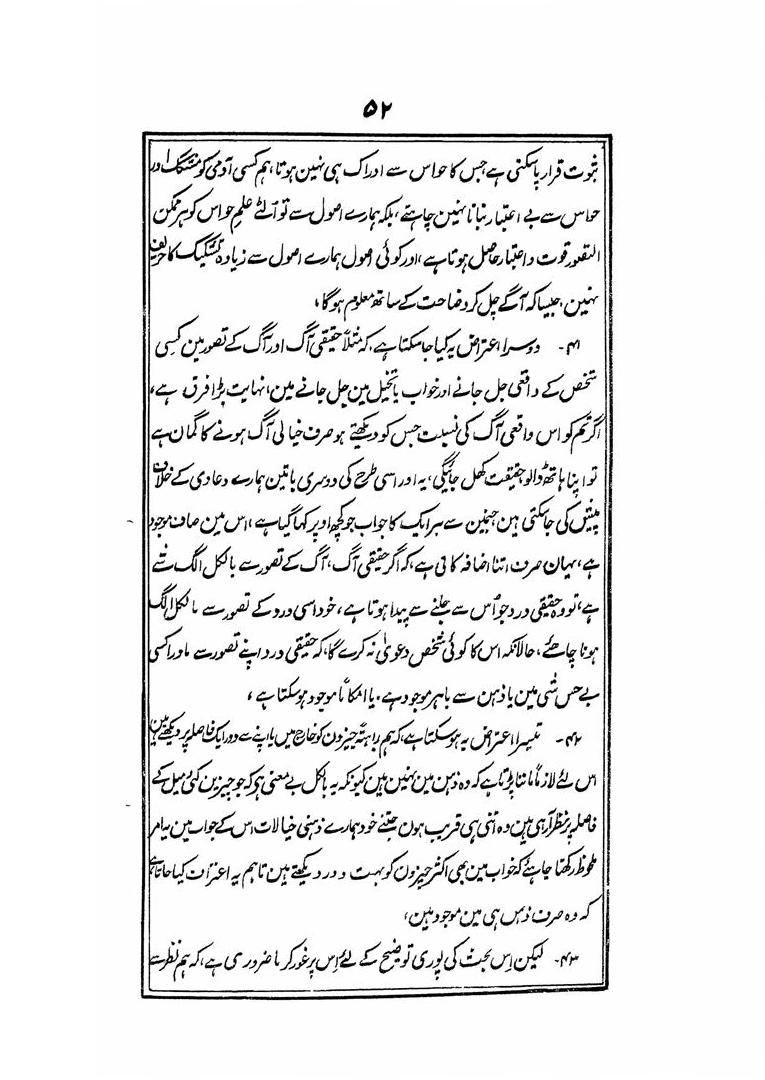 ۵۲
ثبوت قرار پاسکتی ہے جس کا حواس سے ادراک ہی نہین ہوتا، ہم کسی آدمی کو متشکک اور
حواس سے بے اعتبار بنانا نہین چاہتے، بلکہ ہمارے اصول سے تو اُلٹے علمِ حواس کو ہر ممکن
التصور قوت و اعتبار حاصل ہوتا ہے، اور کوئی اصول ہمارے اصول سے زیادہ تشکیک کا حریف
نہین، جیسا کہ آگے چل کر وضاحت کے ساتھ معلوم ہوگا،
۴۱- دوسرا اعتراض یہ کیا جا سکتا ہے، کہ مثلاً حقیقی آگ اور آگ کے تصور مین کسی
شخص کے واقعی جل جانے اور خواب یا تخیل مین جل جانے مین، نہایت بڑا فرق ہے،
اگر تم کو اس واقعی آگ کی نسبت جس کو دیکھتے ہو صرف خیالی آگ ہونے کا گمان ہے
تو اپنا ہاتھ ڈالو حقیقت کھل جائیگی، یہ اور اسی طرح کی دوسری باتین ہمارے دعاوی کے خلاف
پیش کی جاسکتی ہین جنمین سے ہر ایک کا جواب جو کچھ اوپر کہا گیا ہے، اس مین صاف موجود
ہے، یہان صرف اتنا اضافہ کافی ہے، کہ اگر حقیقی آگ، آگ کے تصور سے بالکل الگ شے
ہے، تو وہ حقیقی درد جو اُس سے جلنے سے پیدا ہوتا ہے، خود اسی درد کے تصور سے بالکل الگ
ہونا چاہئے، حالانکہ اس کا کوئی شخص دعویٰ نہ کرے گا، کہ حقیقی درد اپنے تصور سے ماورا کسی
بے حس شی مین یا ذہن سے باہر موجود ہے، یا امکاناً موجود ہو سکتا ہے،
۴۲- تیسرا اعتراض یہ ہو سکتا ہے، کہ ہم براہتہً چیزون کو خارج میں یا اپنے سے دور ایک فاصلہ پر دیکھتے ہین
اس لئے لازماً ماننا پڑتا ہے کہ وہ ذہن مین نہین ہین کیونکہ یہ بالکل بے معنی ہی کہ جو چیزین کئی میل کے
فاصلہ پر نظر آ رہی ہین وہ اتنی ہی قریب ہون جتنے خود ہمارے ذہنی خیالات اس کے جواب مین یہ امر
ملحوظ رکھنا چاہئے کہ خواب مین بھی اکثر چیزون کو بہت دور دیکھتے ہین تاہم یہ اعتراف کیا جاتا ہے
کہ وہ صرف ذہن ہی مین موجود ہین،
۴۳- لیکن اِس بحث کی پوری توضیح کے لئے اِس پر غور کرنا ضروری ہے، کہ ہم نظر سے